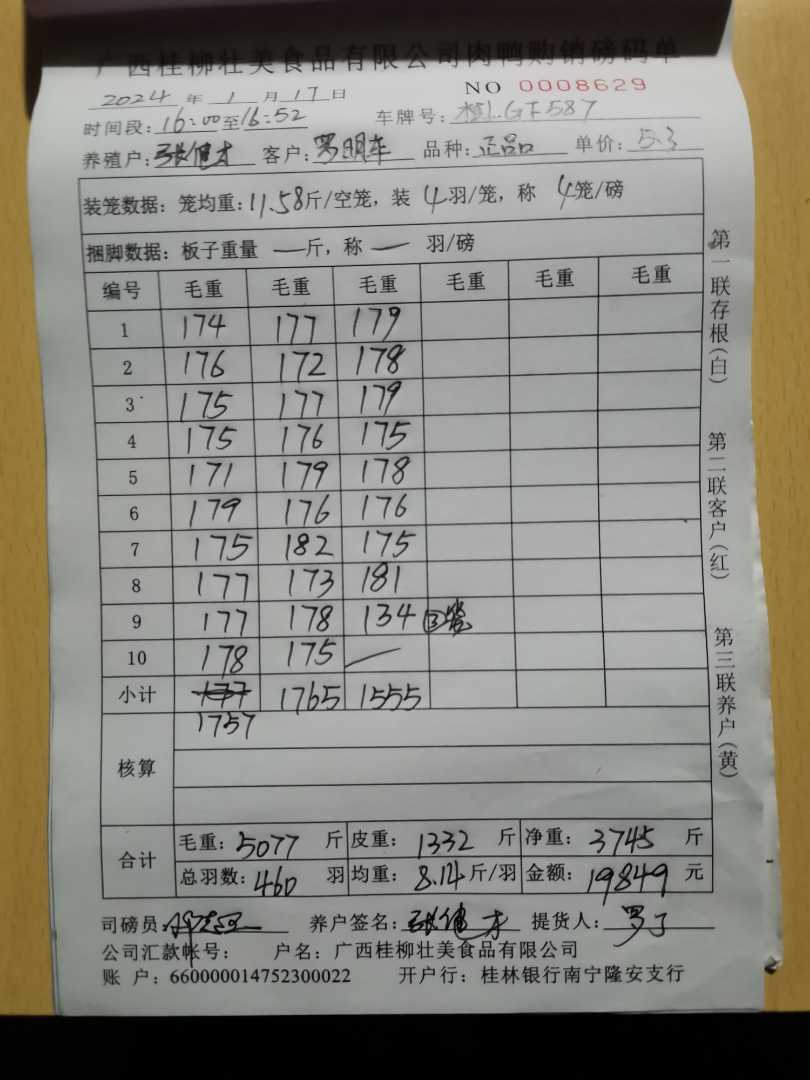 广西桂柳壮美食品有限公司肉鸭购销磅码单
NO 0008629
2024 年 1 月 17 日
时间段: 16:00 至 16:52 车牌号: 桂L GF587
养殖户: 张健才 客户: 罗明车 品种: 正品 单价: 5.3
装笼数据: 笼均重: 11.58 斤/空笼, 装 4 羽/笼, 称 4 笼/磅
捆脚数据: 板子重量 — 斤, 称 — 羽/磅
编号 毛重 毛重 毛重 毛重 毛重 毛重
1 174 177 179
2 176 172 178
3 175 177 179
4 175 176 175
5 171 179 178
6 179 176 176
7 175 182 175
8 177 173 181
9 177 178 134 ③笼
10 178 175 —
小计 1765 1555
1757
核算
合计
毛重: 5077 斤 皮重: 1332 斤 净重: 3745 斤
总羽数: 460 羽 均重: 8.14 斤/羽 金额: 19849 元
司磅员: 养户签名: 张健才 提货人: 罗
公司汇款帐号: 户名: 广西桂柳壮美食品有限公司
账 户: 660000014752300022 开户行: 桂林银行南宁隆安支行
第一联存根(白)
第二联客户(红)
第三联养户(黄)